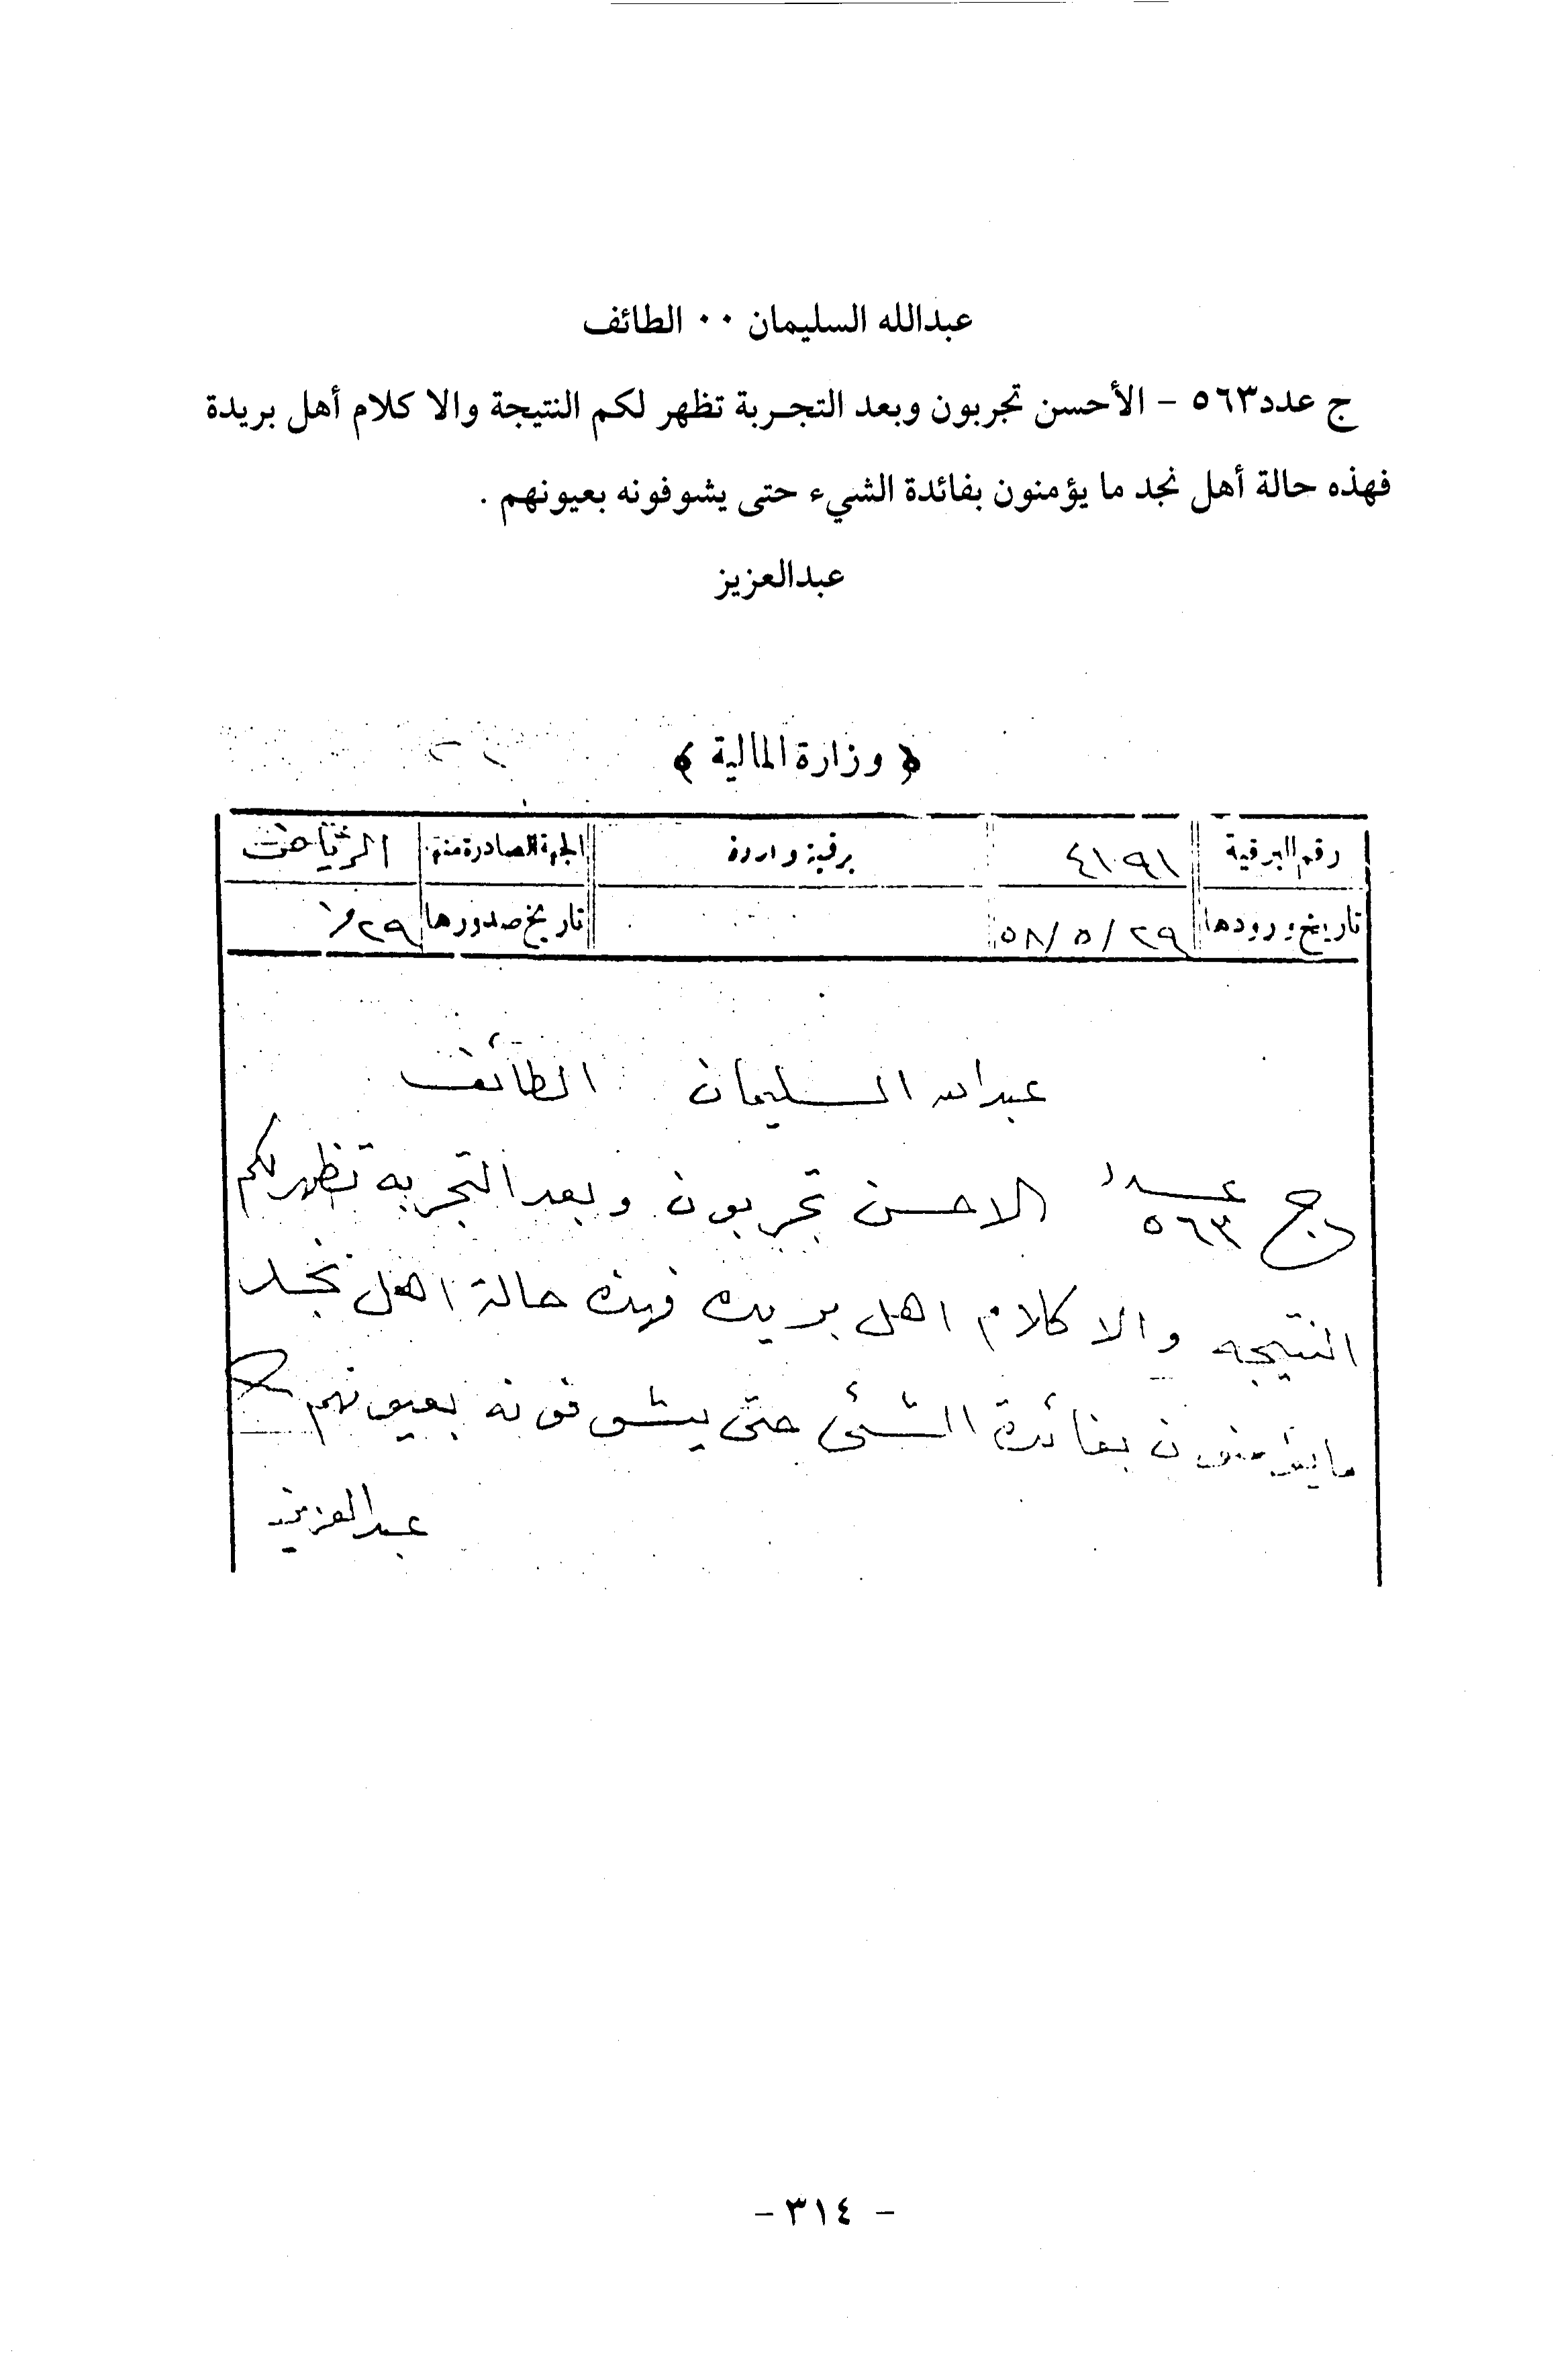 عبدالله السليمان ٠٠ الطائف
ج عدد٥٦٣ - الأحسن تجربون وبعد التجربة تظهر لكم النتيجة والا كلام أهل بريدة
فهذه حالة أهل نجد ما يؤمنون بفائدة الشيء حتى يشوفونه بعيونهم .
عبدالعزيز
﴿ وزارة المالية ﴾
رقم البرقية ٤١٠٩١ برقية واردة الجهة الصادرة منه الرياض
تاريخ ورودها ٢٩/٥/٥٨ تاريخ صدورها ٢٩
عبدالله السليمان الطائف
ج عدد ٥٦٣ الاحسن تجربون وبعد التجربه تظهر لكم
النتيجه والا كلام اهل بريده فهذه حالة اهل نجد
ما يؤمنون بفائدة الشئ حتى يشوفونه بعيونهم
عبدالعزيز
- ٣١٤ -